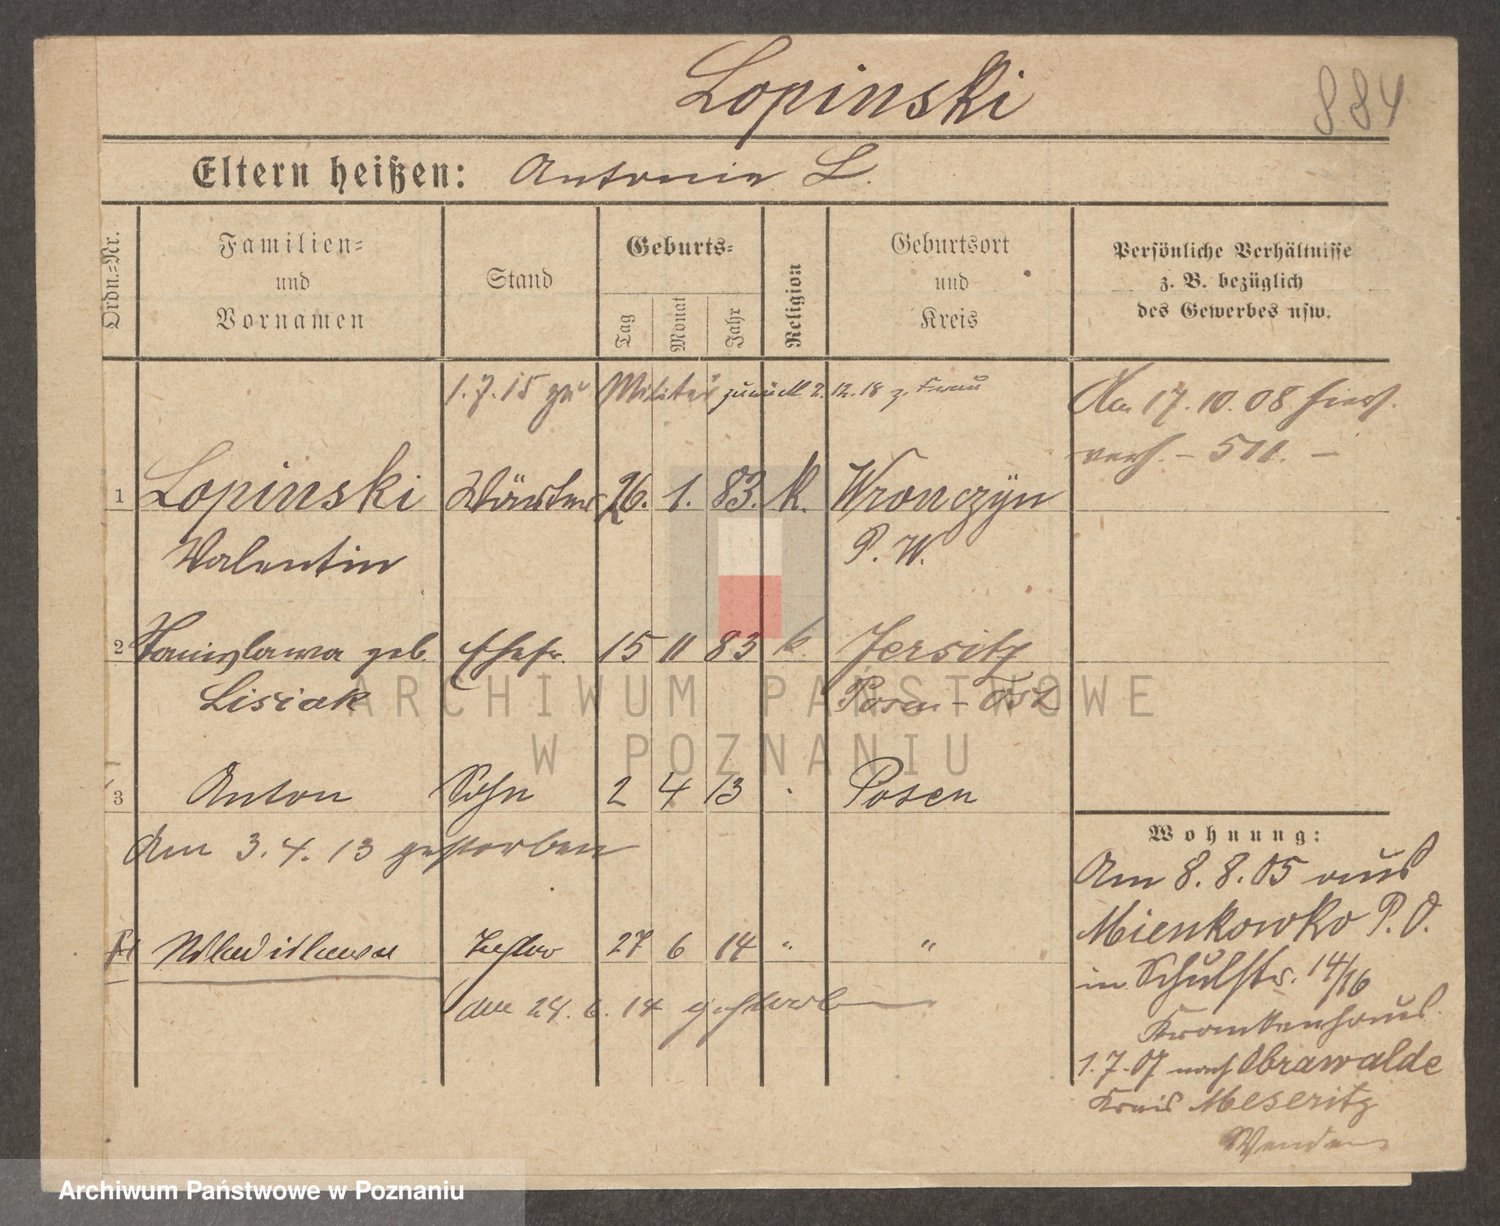 Lopinski
884
Eltern heißen: Antonie L.
Ordn.=Nr.
Familien=
und
Vornamen
Stand
Geburts=
Tag
Monat
Jahr
Religion
Geburtsort
und
Kreis
Persönliche Verhältnisse
z. B. bezüglich
des Gewerbes usw.
1.7.15 zu Militär zurück 2.12.18 z. Frau
Am 17.10.08 hier
verh. - 511. -
1 Lopinski Wärter 26. 1. 83. K. Wronczyn
Valentin P. W.
2 Stanislawa geb. Ehefr. 15 11 83 k. Jersitz
Lisiak Posen - Ost
3 Anton Sohn 2 4 13 Posen
Am 3.4.13 gestorben
4 Wladislawa Tochter 27 6 14 " "
am 28.6.14 gestorben
Wohnung:
Am 8.8.05 aus
Mienkowko P. O.
in Schulstr. 14/16
Krankenhaus.
1.7.07 nach Obrawalde
Kreis Meseritz
Wenden
ARCHIWUM PAŃSTWOWE
W POZNANIU
Archiwum Państwowe w Poznaniu